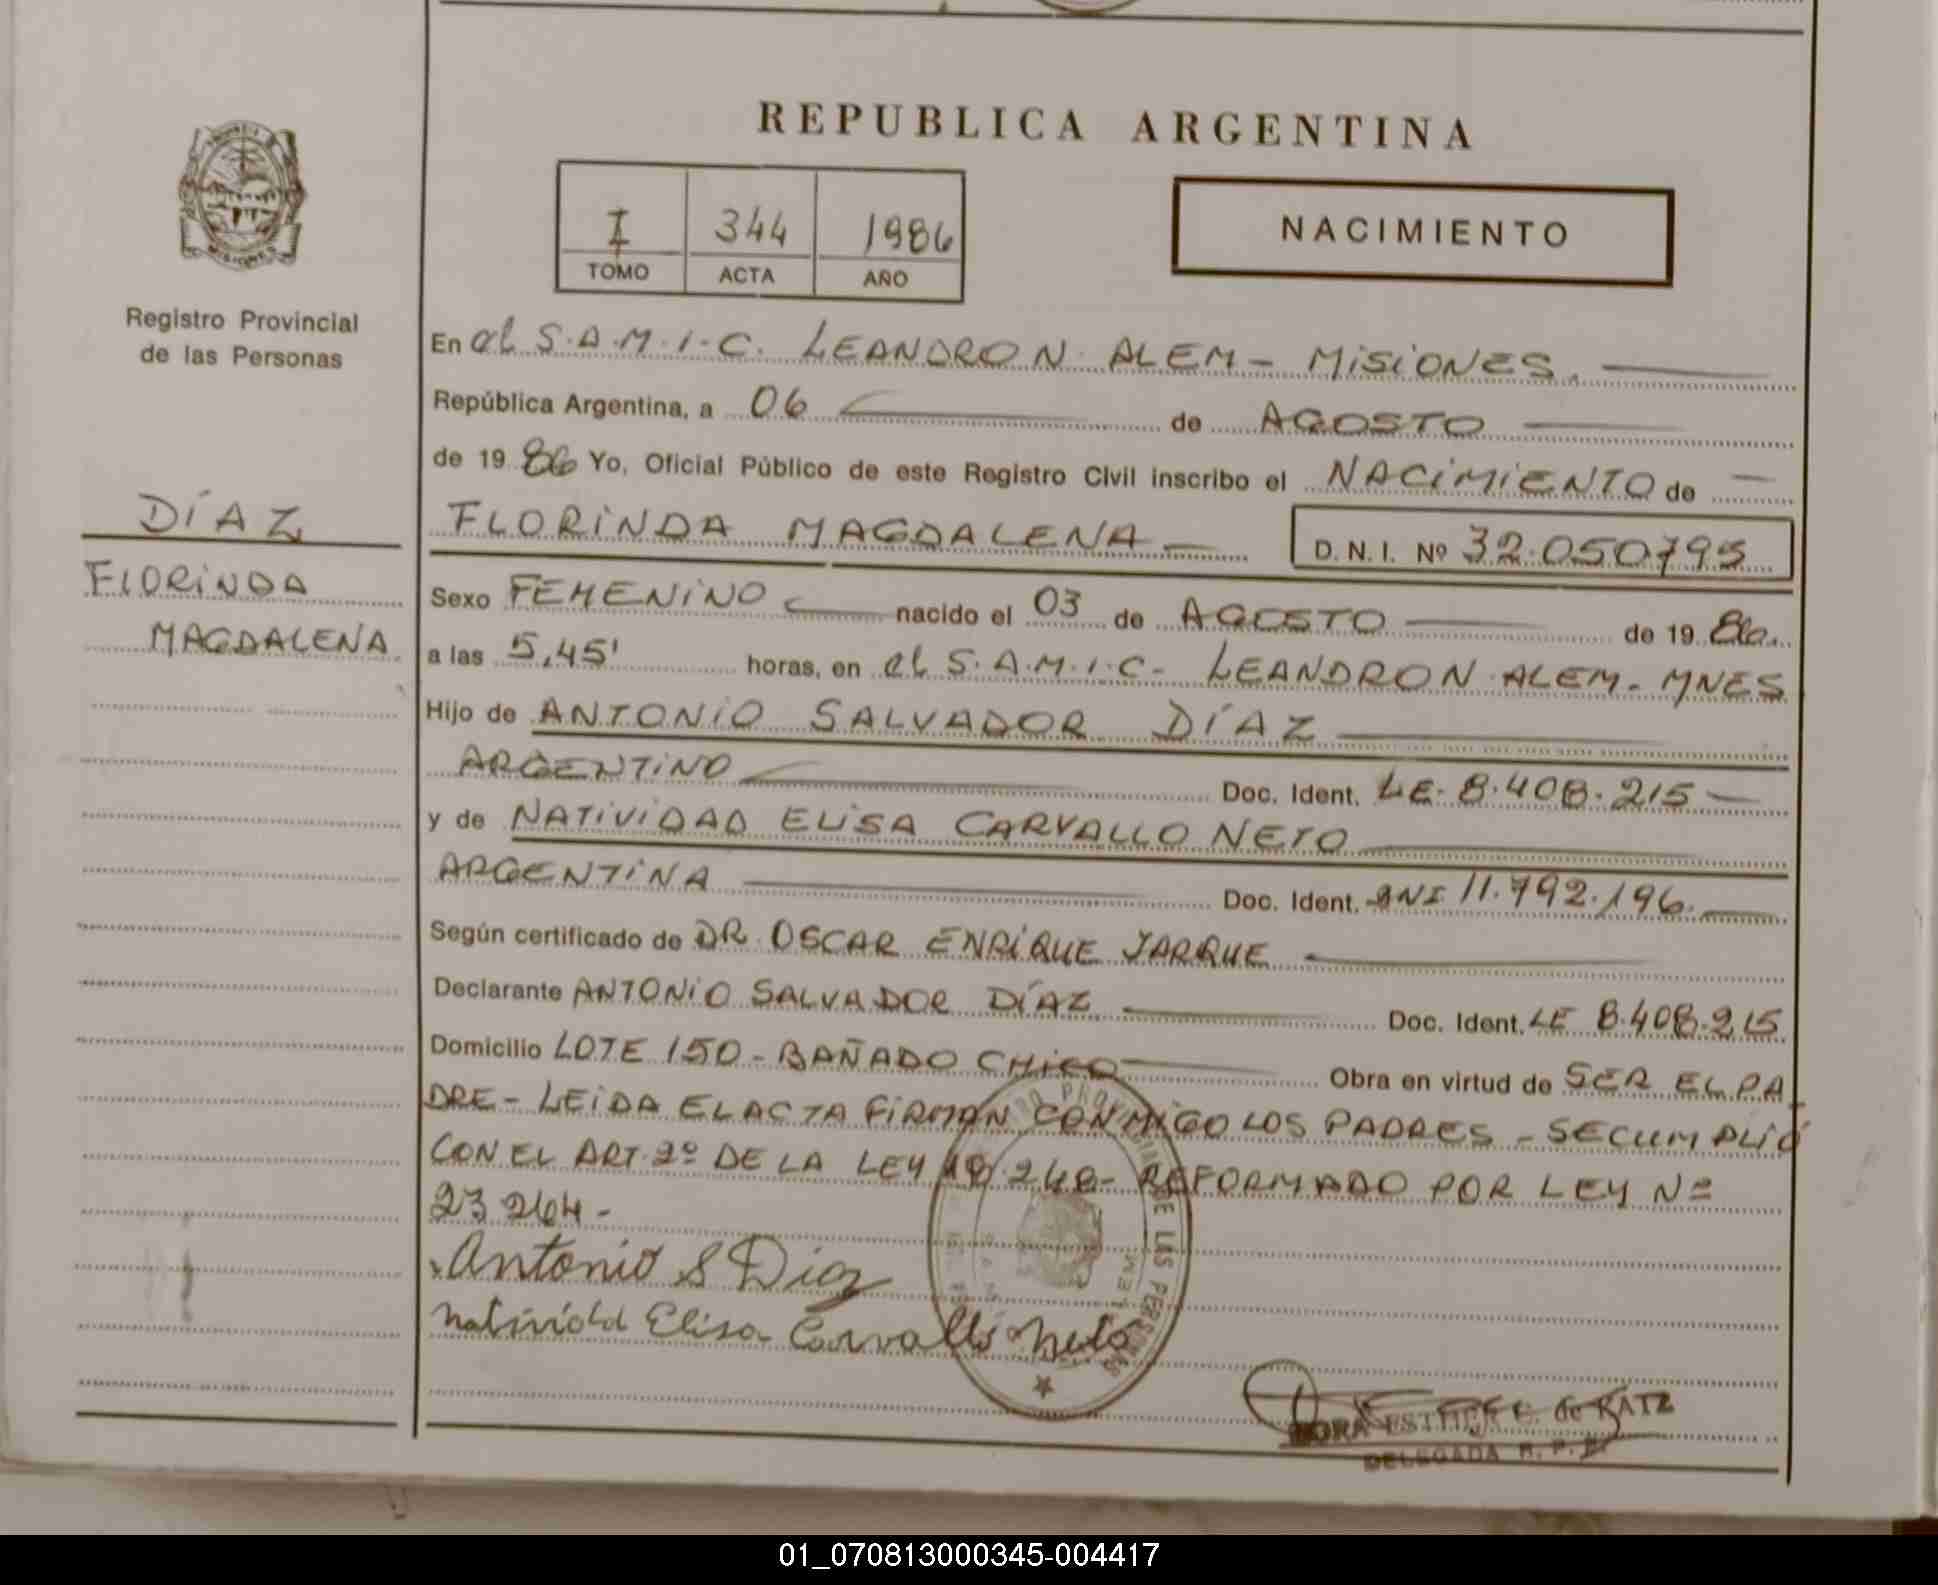 REPUBLICA ARGENTINA
MISIONES
Registro Provincial
de las Personas
I 344 1986
TOMO ACTA AÑO
NACIMIENTO
DÍAZ
FLORINDA
MAGDALENA
En el S.A.M.I.C. LEANDRO N. ALEM - MISIONES.
República Argentina, a 06 de AGOSTO
de 19 86 Yo, Oficial Público de este Registro Civil inscribo el NACIMIENTO de
FLORINDA MAGDALENA D.N.I. Nº 32.050795
Sexo FEMENINO nacido el 03 de AGOSTO de 19 86.
a las 5,45' horas, en el S.A.M.I.C- LEANDRO N. ALEM. MNES
Hijo de ANTONIO SALVADOR DÍAZ
ARGENTINO Doc. Ident. LE. 8.408.215
y de NATIVIDAD ELISA CARVALLO NETO
ARGENTINA Doc. Ident. DNI 11.792.196.
Según certificado de DR. OSCAR ENRIQUE JARQUE
Declarante ANTONIO SALVADOR DÍAZ Doc. Ident. LE 8.408.215
Domicilio LOTE 150 - BAÑADO CHICO Obra en virtud de SER EL PA
DRE - LEIDA EL ACTA FIRMAN CONMIGO LOS PADRES - SE CUMPLIÓ
CON EL ART. 2º DE LA LEY 18.248- REFORMADO POR LEY Nº
23264-
Antonio S Diaz
Natividad Elisa Carvallo Neto
DE LAS PERSONAS
ESTHER de KATZ
DELEGADA R. P.
01_070813000345-004417